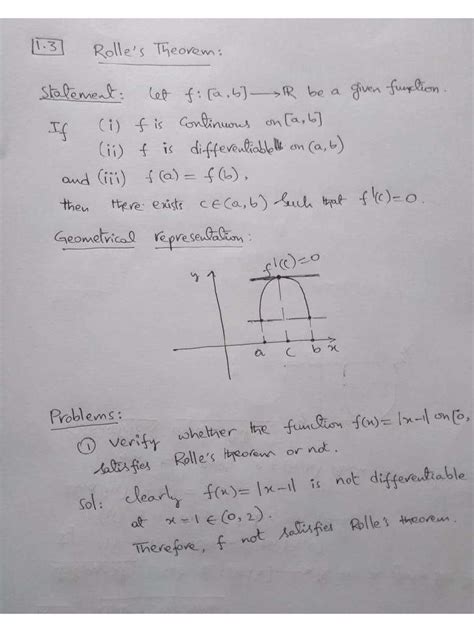 1.3 Rolle's Theorem:
Statement: Let f: [a,b] → ℝ be a given function.
If (i) f is continuous on [a,b]
(ii) f is differentiable on (a,b)
and (iii) f(a) = f(b),
then there exists c∈(a,b) such that f'(c)=0.
Geometrical representation:
f'(c)=0
y
a c b x
Problems:
① Verify whether the function f(x)=|x-1| on [0,
satisfies Rolle's theorem or not.
Sol: Clearly f(x)=|x-1| is not differentiable
at x=1∈(0,2).
Therefore, f not satisfies Rolle's theorem.